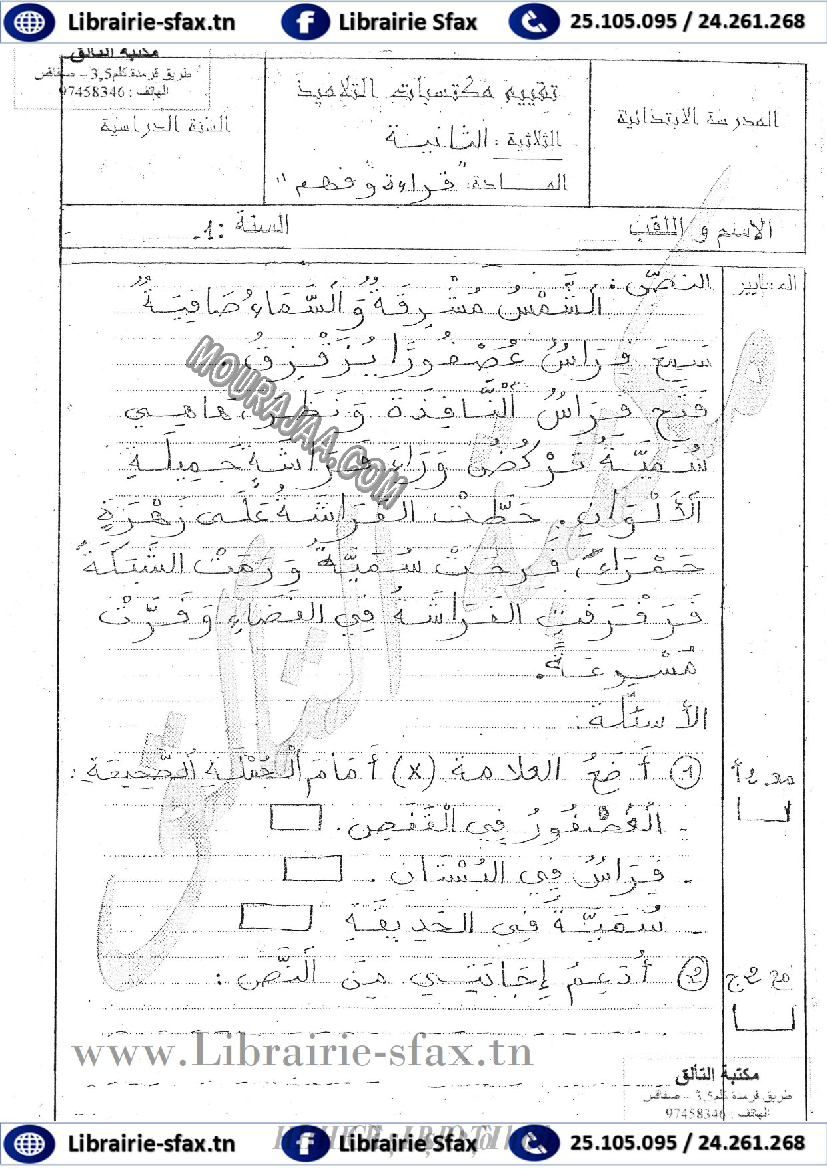 Librairie-sfax.tn Librairie Sfax 25.105.095 / 24.261.268
مكتبة التألق
طريق قرمدة كلم 3,5 – صفاقس
الهاتف : 97458346
المدرسة الابتدائية
تقييم مكتسبات التلاميذ
الثلاثية : الثانية
المادة: "قراءة و فهم"
السنة الدراسية
الاسم و اللقب
السنة : 1-
المعايير
النصّ :
اَلشَّمْسُ مُشْرِقَةٌ وَالسَّمَاءُ صَافِيَةٌ
سَمِعَ فِرَاسُ عُصْفُورًا يُزَقْزِقُ.
فَتَحَ فِرَاسُ اُلنَّافِذَةَ وَنَظَرَ، هاهِي
سُمَيَّةُ تَرْكُضُ وَرَاءَ فَرَاشَةٍ جَمِيلَةِ
اَلْأَلْوَانِ. حَطَّتْ الفَرَاشَةُ عَلَى زَهْرَةٍ
حَمْرَاءَ، فَرِحَتْ سُمَيَّةُ وَرَمَتْ الشَّبَكَةَ
فَرَفْرَفَتْ الفَرَاشَةُ فِي الفَضَاءِ وَفَرَّتْ
مُسْرِعَة.
الأسئلة:
مع 2 أ
① أَضَعُ العلامة (x) أَمَامَ اَلْجُمْلَةِ اَلصَّحِيحَةِ :
- اَلْعُصْفُورُ فِي الْقَفَصِ.
- فِرَاسُ فِي البُسْتَانِ.
- سُمَيَّةُ فِي الحَدِيقَةِ
مع 2 ج
② أُدَعِّمُ إِجَابَتِي مِنَ اَلنَّصِّ :
www.Librairie-sfax.tn
مكتبة التألق
طريق قرمدة كلم 3,5 – صفاقس
الهاتف : 97458346
MOURAJAA.COM
Librairie-sfax.tn Librairie Sfax 25.105.095 / 24.261.268